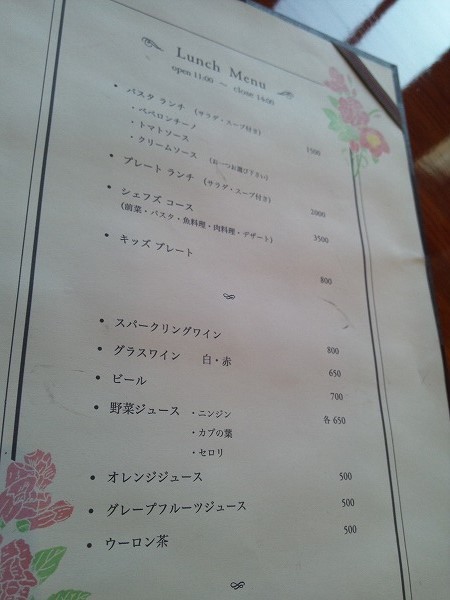 Lunch Menu
open 11:00 ～ close 14:00
• パスタ ランチ （サラダ・スープ付き） 1500
・ペペロンチーノ
・トマトソース
・クリームソース （お一つお選び下さい）
• プレート ランチ （サラダ・スープ付き） 2000
• シェフズ コース 3500
（前菜・パスタ・魚料理・肉料理・デザート）
• キッズ プレート 800
• スパークリングワイン 800
• グラスワイン 白・赤 650
• ビール 700
• 野菜ジュース ・ニンジン 各 650
・カブの葉
・セロリ
• オレンジジュース 500
• グレープフルーツジュース 500
• ウーロン茶 500